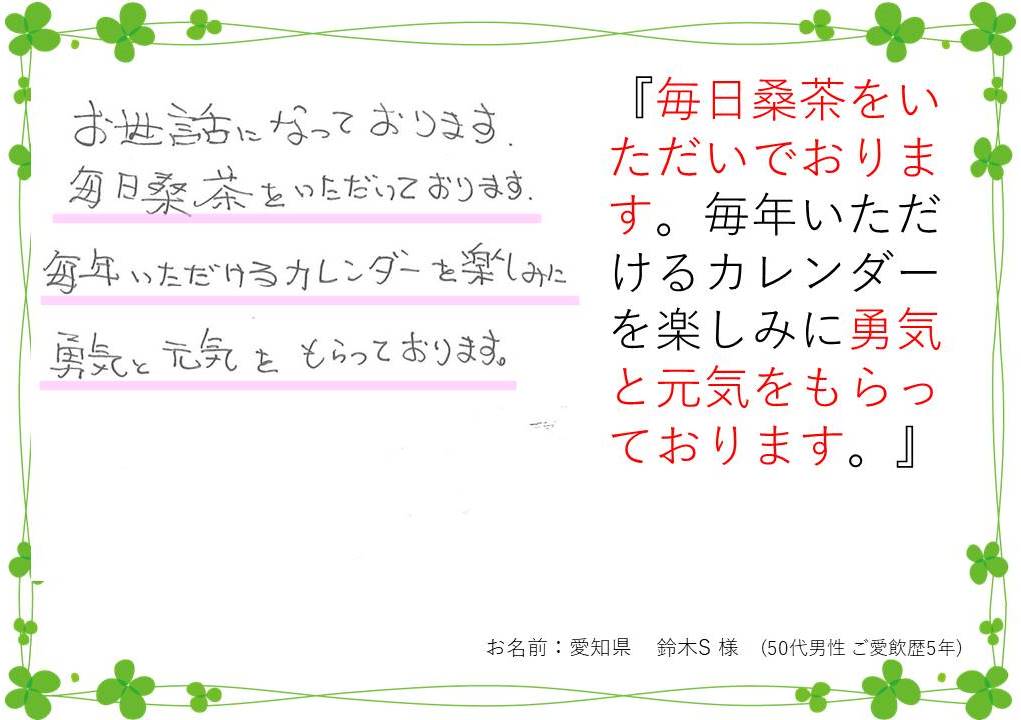 お世話になっております.
毎日桑茶をいただいております.
毎年いただけるカレンダーを楽しみに
勇気と元気を もらっております。
『毎日桑茶をい
ただいでおりま
す。毎年いただ
けるカレンダー
を楽しみに勇気
と元気をもらっ
ております。』
お名前：愛知県　鈴木S 様　(50代男性 ご愛飲歴5年)